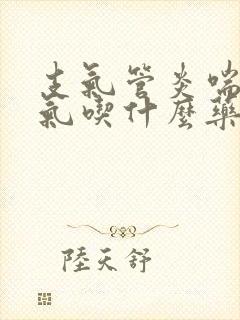 支氣管炎喘
氣喫什麼藥
陸天舒